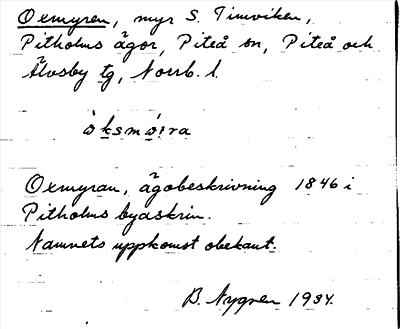 Oxmyren, myr S. Timviken,
Pitholms ägor, Piteå sn, Piteå och
Älvsby tg, Norrb. l.
òksmøira
Oxmyran, ägobeskrivning 1846 i
Pitholms byaskrin.
Namnets uppkomst obekant.
B. Nygren 1934.